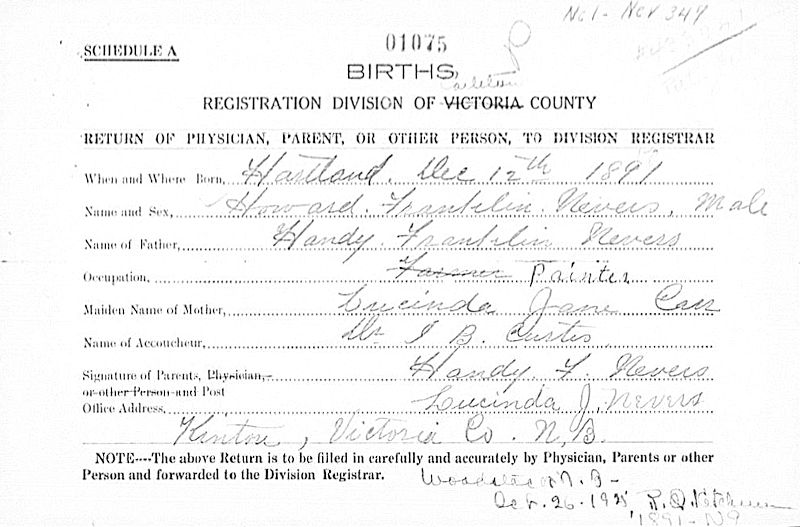 No 1 - Nev 349
SCHEDULE A
01075
BIRTHS,
Carleton
REGISTRATION DIVISION OF VICTORIA COUNTY
RETURN OF PHYSICIAN, PARENT, OR OTHER PERSON, TO DIVISION REGISTRAR
When and Where Born, Hartland. Dec 12th 1891
Name and Sex, Howard Franklin Nevers, Male
Name of Father, Handy Franklin Nevers
Occupation, Farmer Painter
Maiden Name of Mother, Lucinda Jane Carr
Name of Accoucheur, Dr I B. Curtis
Signature of Parents, Physician, Handy F. Nevers
or other Person and Post
Office Address, Lucinda J. Nevers
Kintore, Victoria Co. N.B.
NOTE----The above Return is to be filled in carefully and accurately by Physician, Parents or other
Person and forwarded to the Division Registrar.
Woodstock N.B-
Oct. 26-
1891 - N9